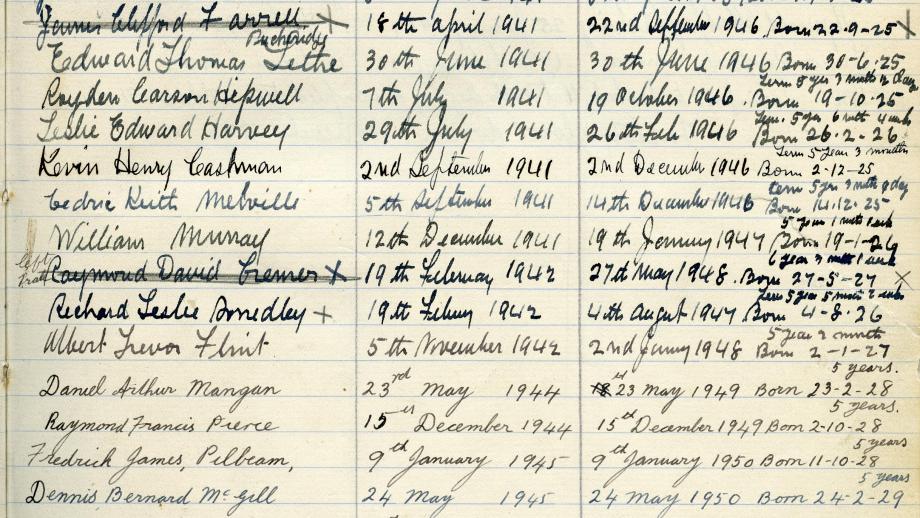 James Clifford Farrell X 18th april 1941 22nd September 1946 Born 22-9-25 X
Edward Thomas Lethe 30th June 1941 30th June 1946 Born 30-6-25
Term 5 yer 3 mnth
Royden Carson Hepwell 7th July 1941 19 October 1946. Born 19-10-25
5 yr 6 mth 4 wek
Leslie Edward Harvey 29th July 1941 26th Feb 1946 Born 26.2-26
Term 5 year 3 months
Kevin Henry Cashman 2nd September 1941 2nd December 1946 Born 2-12-25
term 5 yrs 3 mth 9 day
Cedric Keith Melville 5th September 1941 14th December 1946 Born 14.12.25
5 year 1 mth 1 wek
William Murray 12th December 1941 19th January 1947 Born 19-1-26
6 year 3 mth 1 wek
left
trade Raymond David Cremer X 19th February 1942 27th May 1948. Born 27-5-27 X
Term 5 year 5 mnth 2 weeks
Richard Leslie + 19th 1942 4th August 1947 Born 4-8-26
5 year 2 month
Albert Trevor Flint 5th November 1942 2nd January 1948 Born 2-1-27
5 years.
Daniel Arthur Mangan 23rd May 1944 23rd May 1949 Born 23-2-28
5 years.
Raymond Francis Pierce 15th December 1944 15th December 1949 Born 2-10-28
5 years
Fredrick James, Pelbeam, 9th January 1945 9th January 1950 Born 11-10-28
5 years
Dennis, Bernard McGill 24 May 1945 24 May 1950 Born 24-2-29